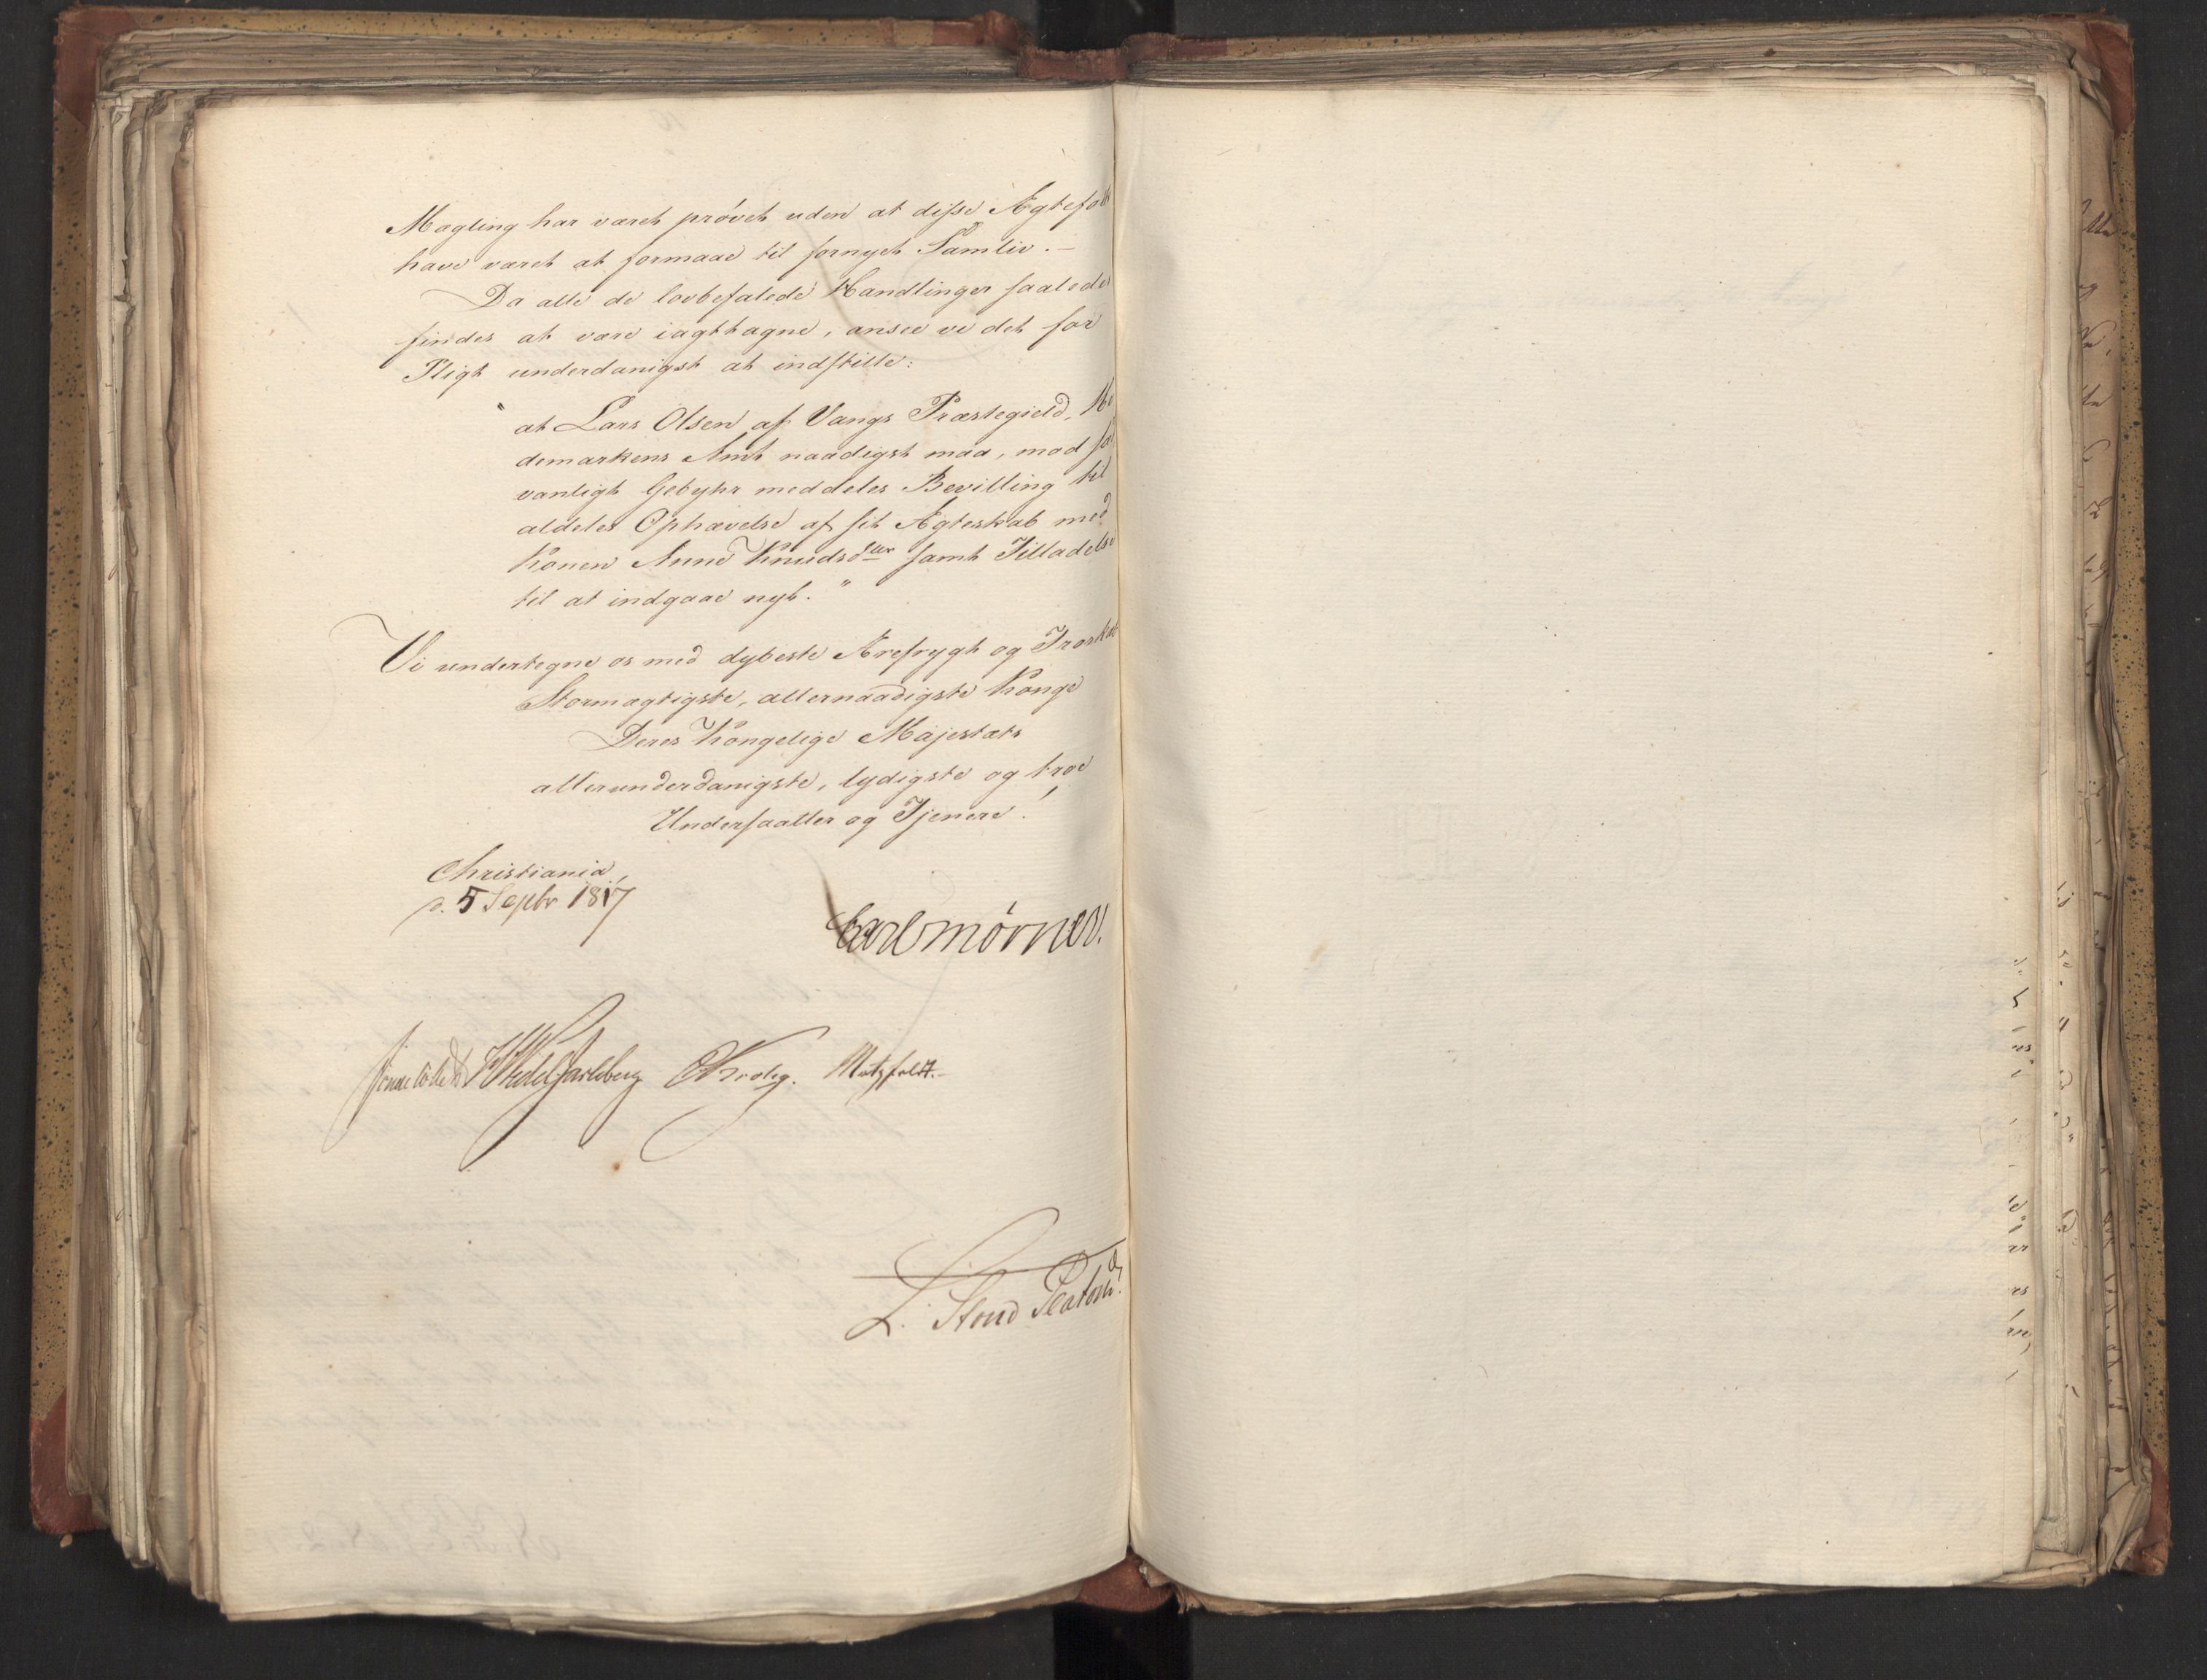 Mægling har været prövet uden at disse Ægtefolk
have været at formaae til fornyet Samliv. –
Da alle de lovbefalede Handlinger saalede
findes at være iagttagne, ansee vi det for
Pligt underdanigst at indstille:
"at Lars Olsen af Vangs Præstegield, He
demarkens Amt naadigst maa, mod sæd
vanligt Gebyhr meddeles Bevilling til
aldeles Ophævelse af sit Ægteskab med
Konen Anne Knudsdtter samt Tilladelse
til at indgaae nyt."
Vi undertegne os med dybeste Ærefrygt og Troskab
Stormægtigste, allernaadigste Konge
Deres Kongelige Majestæts
allerunderdanigste, lydigste og troe
Undersaatter og Tjenere!
Christiania,
d. 5 Septbr 1817
Carl Mörner.
Jonas Collett HWedel Jarlsberg CKrohg. Motzfeldt. –
L. Stoud Platou